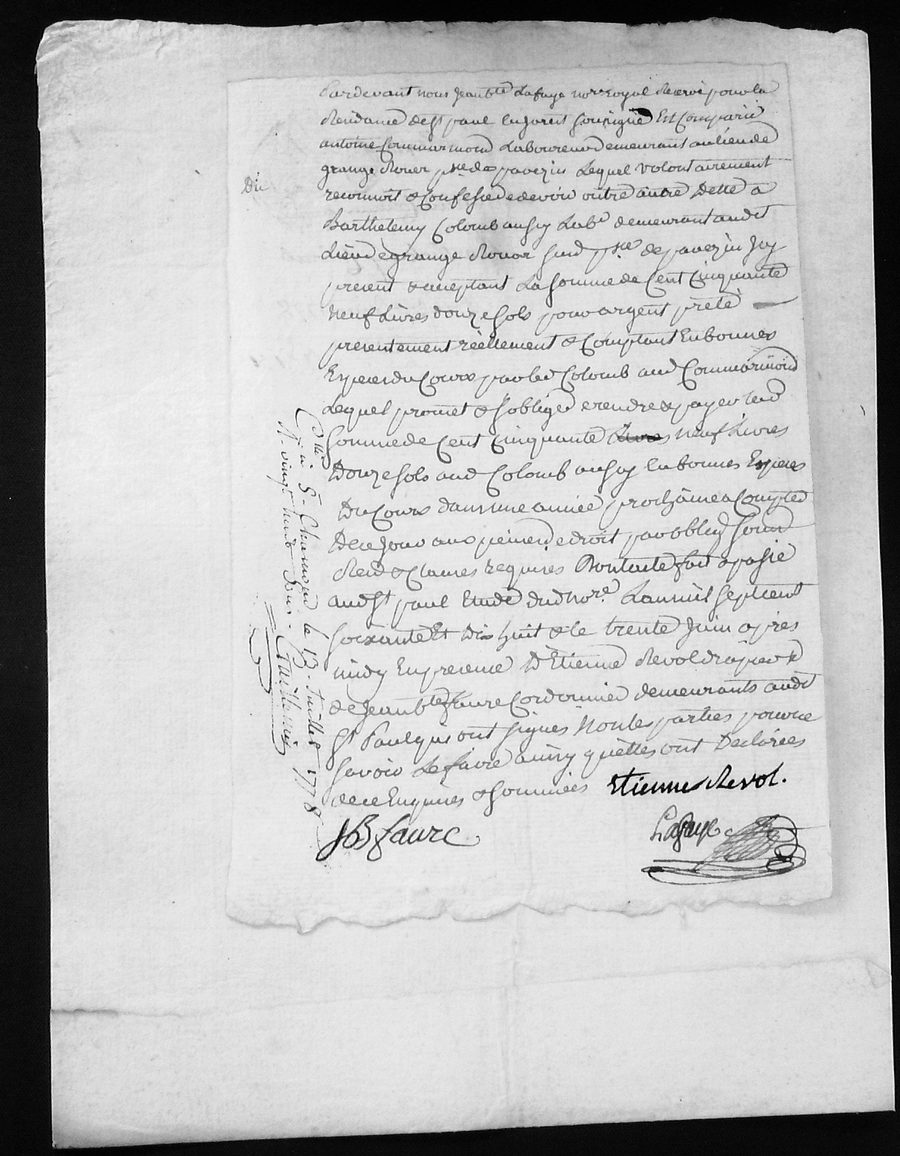 Pardevant nous Jean bte Lafaye nore royal Reservé pour la
Residance de st paul en Jarest soussigné Est Comparu
antoine Commarmond Laboureur demeurant au lieu de
grange Rouer psse de pavezin Lequel volontairement
Du
reconnoit & Confesse de devoir outre autre Dette a
Barthelemy Colomb aussy Labr demeurant audit
Lieu de grange Rouor susd psse de pavezin Icy
present & acceptant La somme de Cent Cinquante
neuf Livres douze sols pour argent prêté
presentement réellement & Comptant En bonnes
Especes du Cours par led Colomb aud Commarmond
Lequel promet & s'oblige de rendre & payer lad
somme de Cent Cinquante Livres neuf Livres
Douze sols aud Colomb aussy En bonnes Especes
Du Cours dans une année prochaine a Compter
De ce Jour aux peines de droit par oblig soum
Rend & Clauses requises Dont acte fait & passé
aud st paul Etude dud nore L'an mil sept cent
soixante Et Dix huit & le trente Juin apres
midy En presence D'Etienne Revol &
de Jean bte faure Cordonnier demeurants audit
st Paul qui ont signés Non les parties pour ne
savoir Le faire ainsy qu'elles ont Declarées
de ce Enquises & sommées Etienne Revol.
JB faure Lafaye
Clle a St Chamond le 13 Juillet 1778
R vingt huit sous